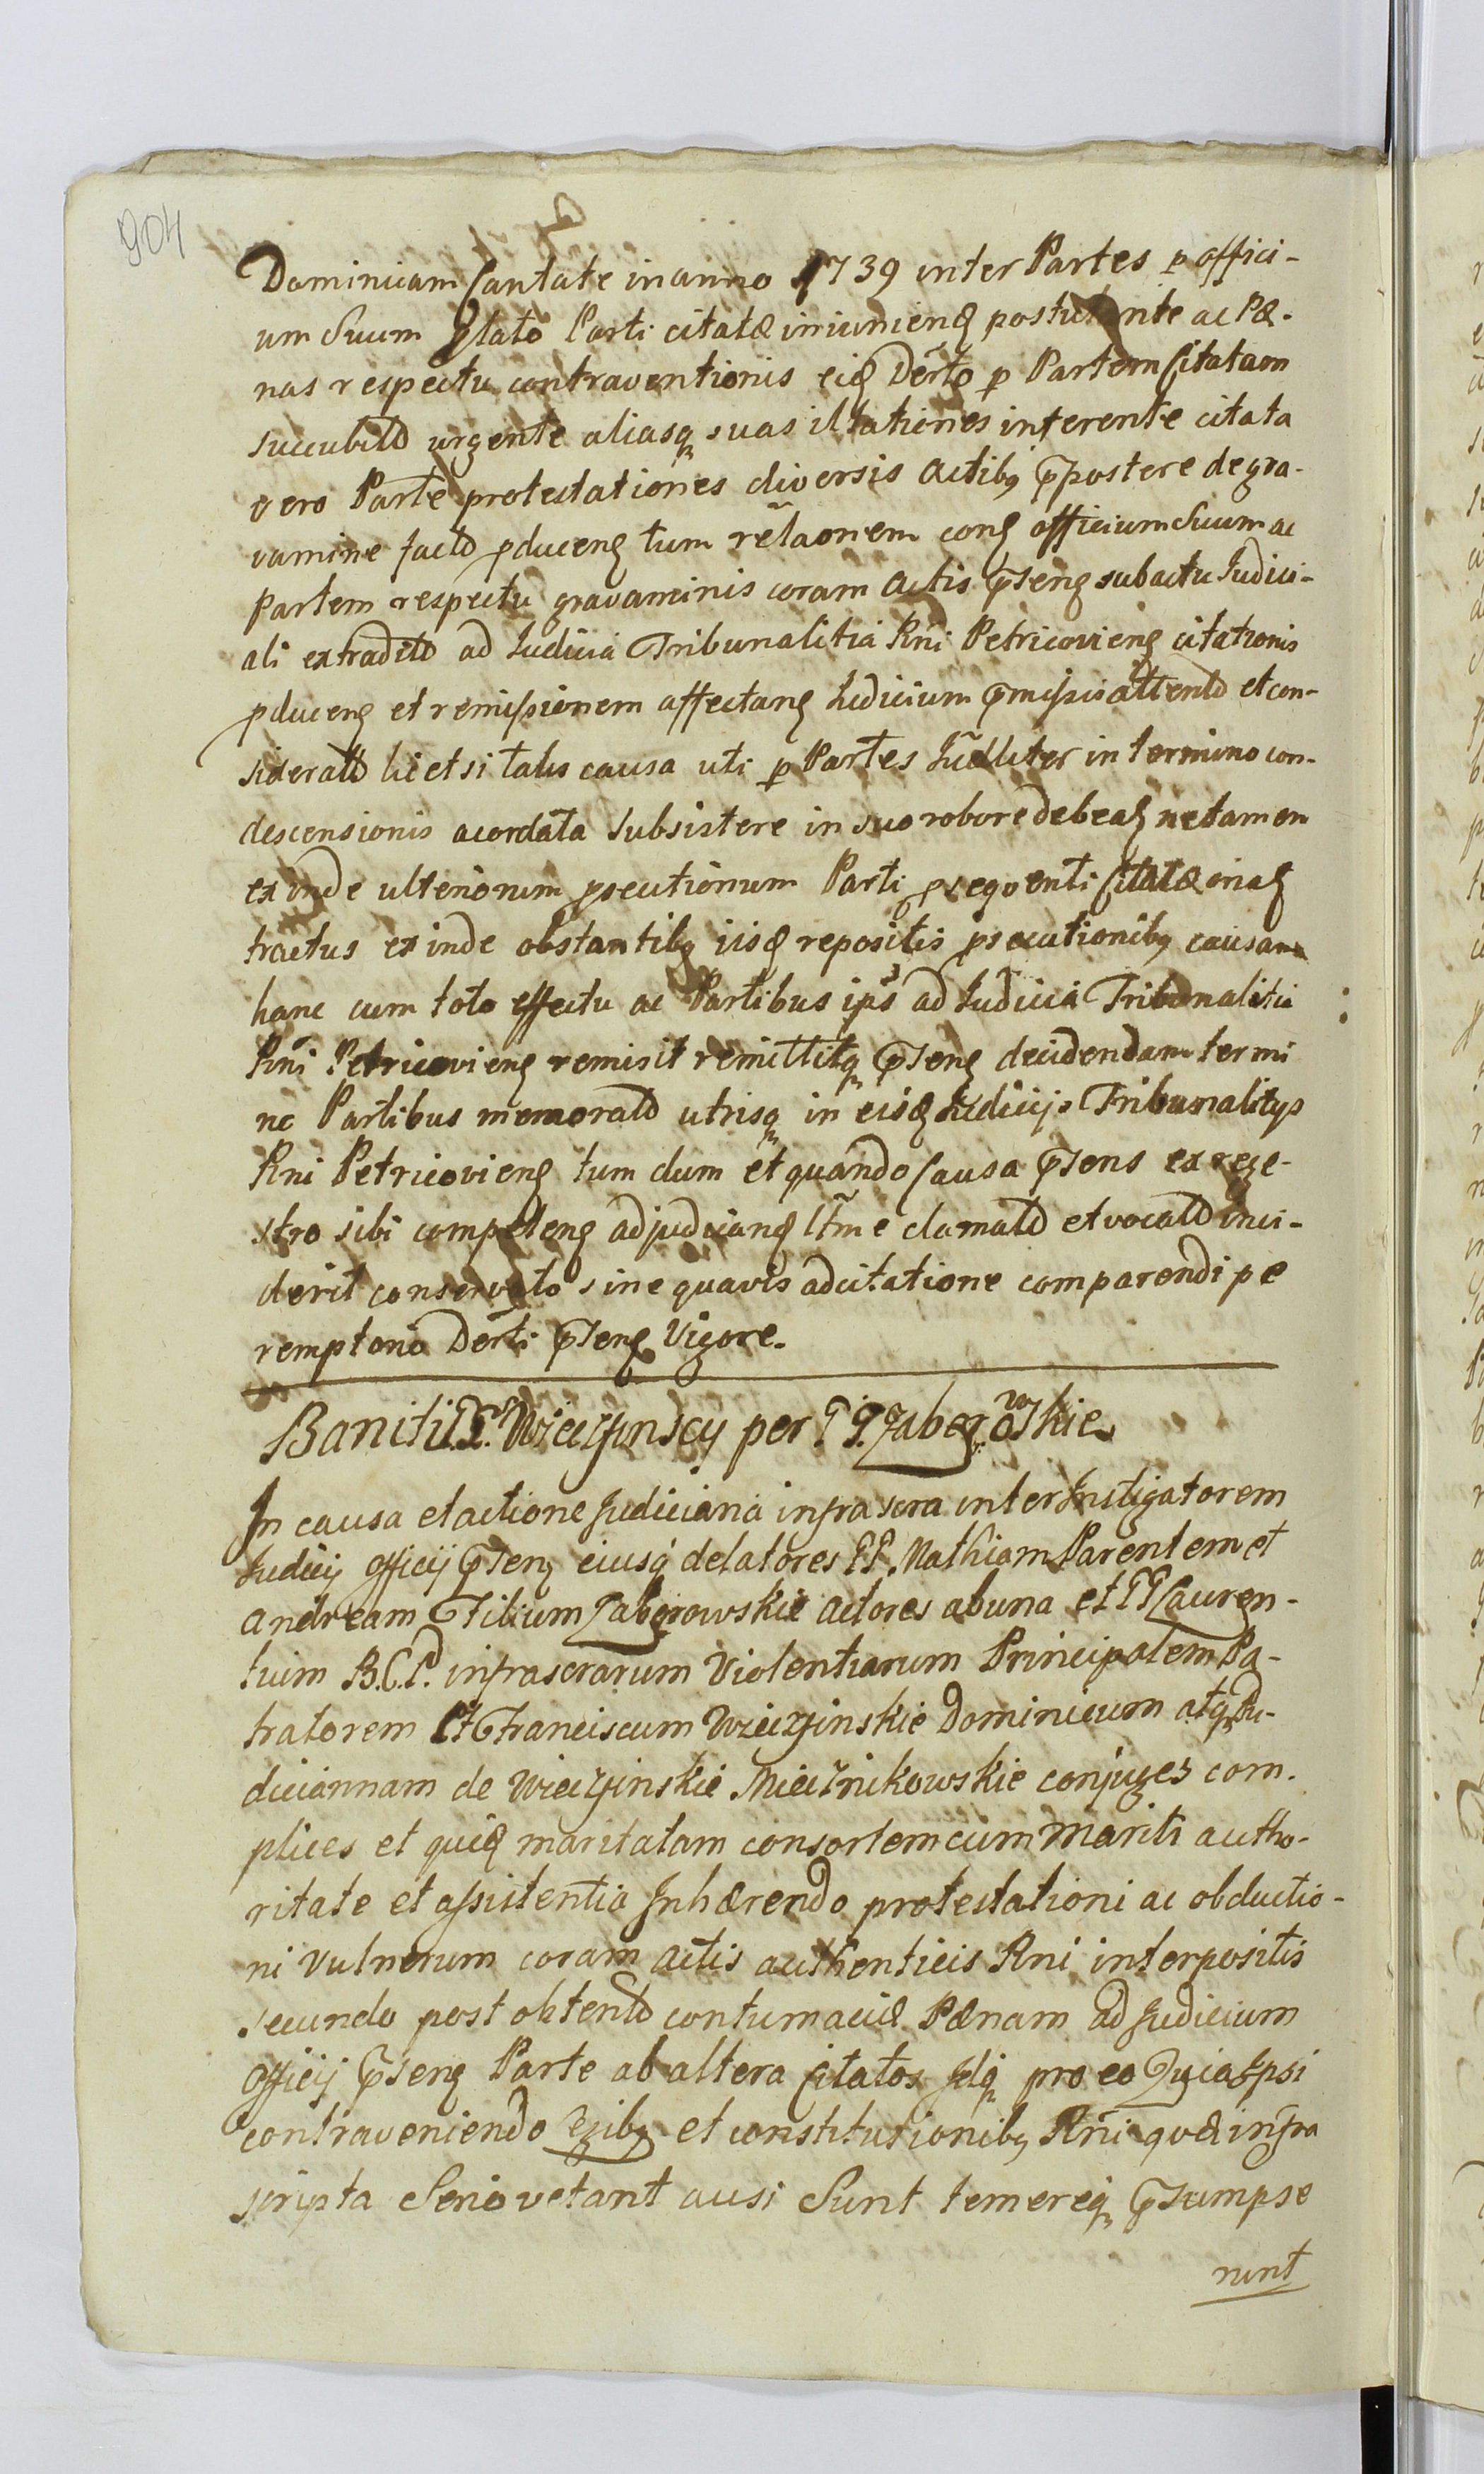 904
Dominicam Cantate in anno 1739 inter Partes p offici-
um Suum Ptato Parti citatæ iniuncienꝗ postulante ac Pæ-
nas respectu contraventionis eiꝗ Derto p Partem Citatam
succubitd urgente aliasq suas illationes inferente citata
vero Parte protestationes diversis Actibꝫ ꝓpostere de gra-
vamine factd pducenꝗ tum relaonem conꝗ officium Suum ac
Partem respectu gravaminis coram Actis ꝓsenꝗ sub actu Judici-
ali extraditd ad Judicia Tribunalitia Rni Petricovienꝗ citationis
pducenꝗ et remissionem affectanꝗ Judicium ꝓmissis attentd et con-
sideratd licet si talis causa uti p Partes Judliter in termino con-
descensionis acordata subsistere in suo robore debeaꝗ ne tamen
ex inde ulteriorum psecutionum Parti psequenti Citatæ oriaꝗ
tractus ex inde obstantibꝫ iisꝗ repositis psecutionibꝫ causam
hanc cum toto effectu ac Partibus ips ad Judicia Tribunalitia
Rni Petricovienꝗ remisit remittitq ꝓsenꝗ decidendam termi
nc Partibus memoratd utrisq in eisꝗ Judicijs Tribunalitys
Rni Petricovienꝗ tum dum et quando Causa ꝓsens ex rege-
stro sibi competenꝗ adjudicanꝗ ltme clamatd et vocatd inci-
derit conservato sine quavis adcitatione comparendi pe
remptorio Derti ꝓsenꝗ Vigore.
Baniti G. Wieczynscy per G G. Zaberowskie.
In causa et actione Judiciaria infra scra inter Instigatorem
Judicij Officij ꝓsenꝗ eiusq delatores GG. Mathiam Parentem et
Andream Filium Zaborowskie Actores ab una et GG Lauren-
tium B.C.P. infrascrarum Violentiarum Principalem Pa-
tratorem Et Franciscum Wieczynskie Dominicum atq Du-
diciannam de Wieczynskie Miecznikowskie conjuges com-
plices et quiꝗ maritatam consortem cum Mariti autho-
ritate et assistentia Inhærendo protestationi ac obductio-
ni Vulnerum coram Actis authenticis Rni interpositis
secundo post obtentd contumaciæ Pænam ad Judicium
Officij ꝓsenꝗ Parte ab altera Citatos Idq pro eo Quia Ipsi
contraveniendo Legibꝫ et constitutionibꝫ Rni quæ infra
scripta Serio vetant ausi Sunt temereq ꝓsumpse
runt